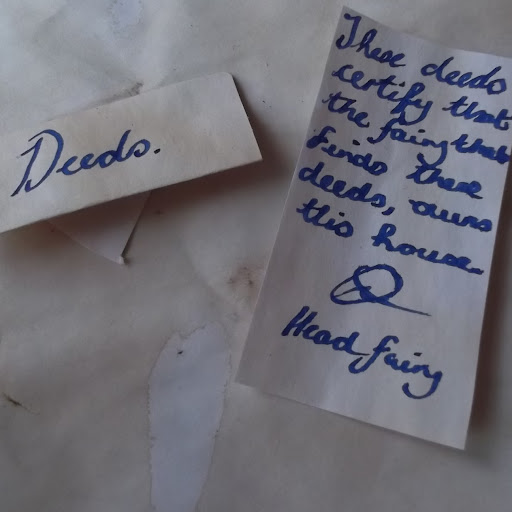 Deeds.
These deeds
certify that
the fairy that
finds these
deeds, owns
this house.
Head fairy